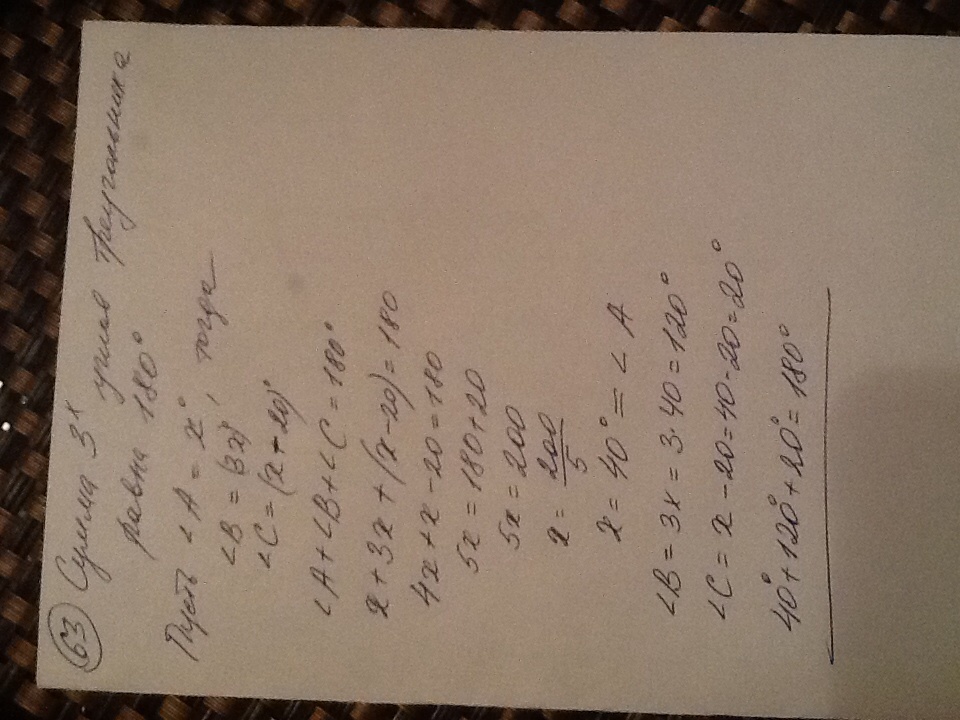 63 Сумма 3ˣ углов треугольника
равна 180°
Пусть ∠A = x°
∠B = (3x)°, тогда
∠C = (x + 20)°
∠A + ∠B + ∠C = 180°
x + 3x + (x - 20) = 180
4x + x - 20 = 180
5x = 180 + 20
5x = 200
x = 200/5
x = 40° = ∠A
∠B = 3x = 3·40 = 120°
∠C = x - 20 = 40 - 20 = 20°
40° + 120° + 20° = 180°